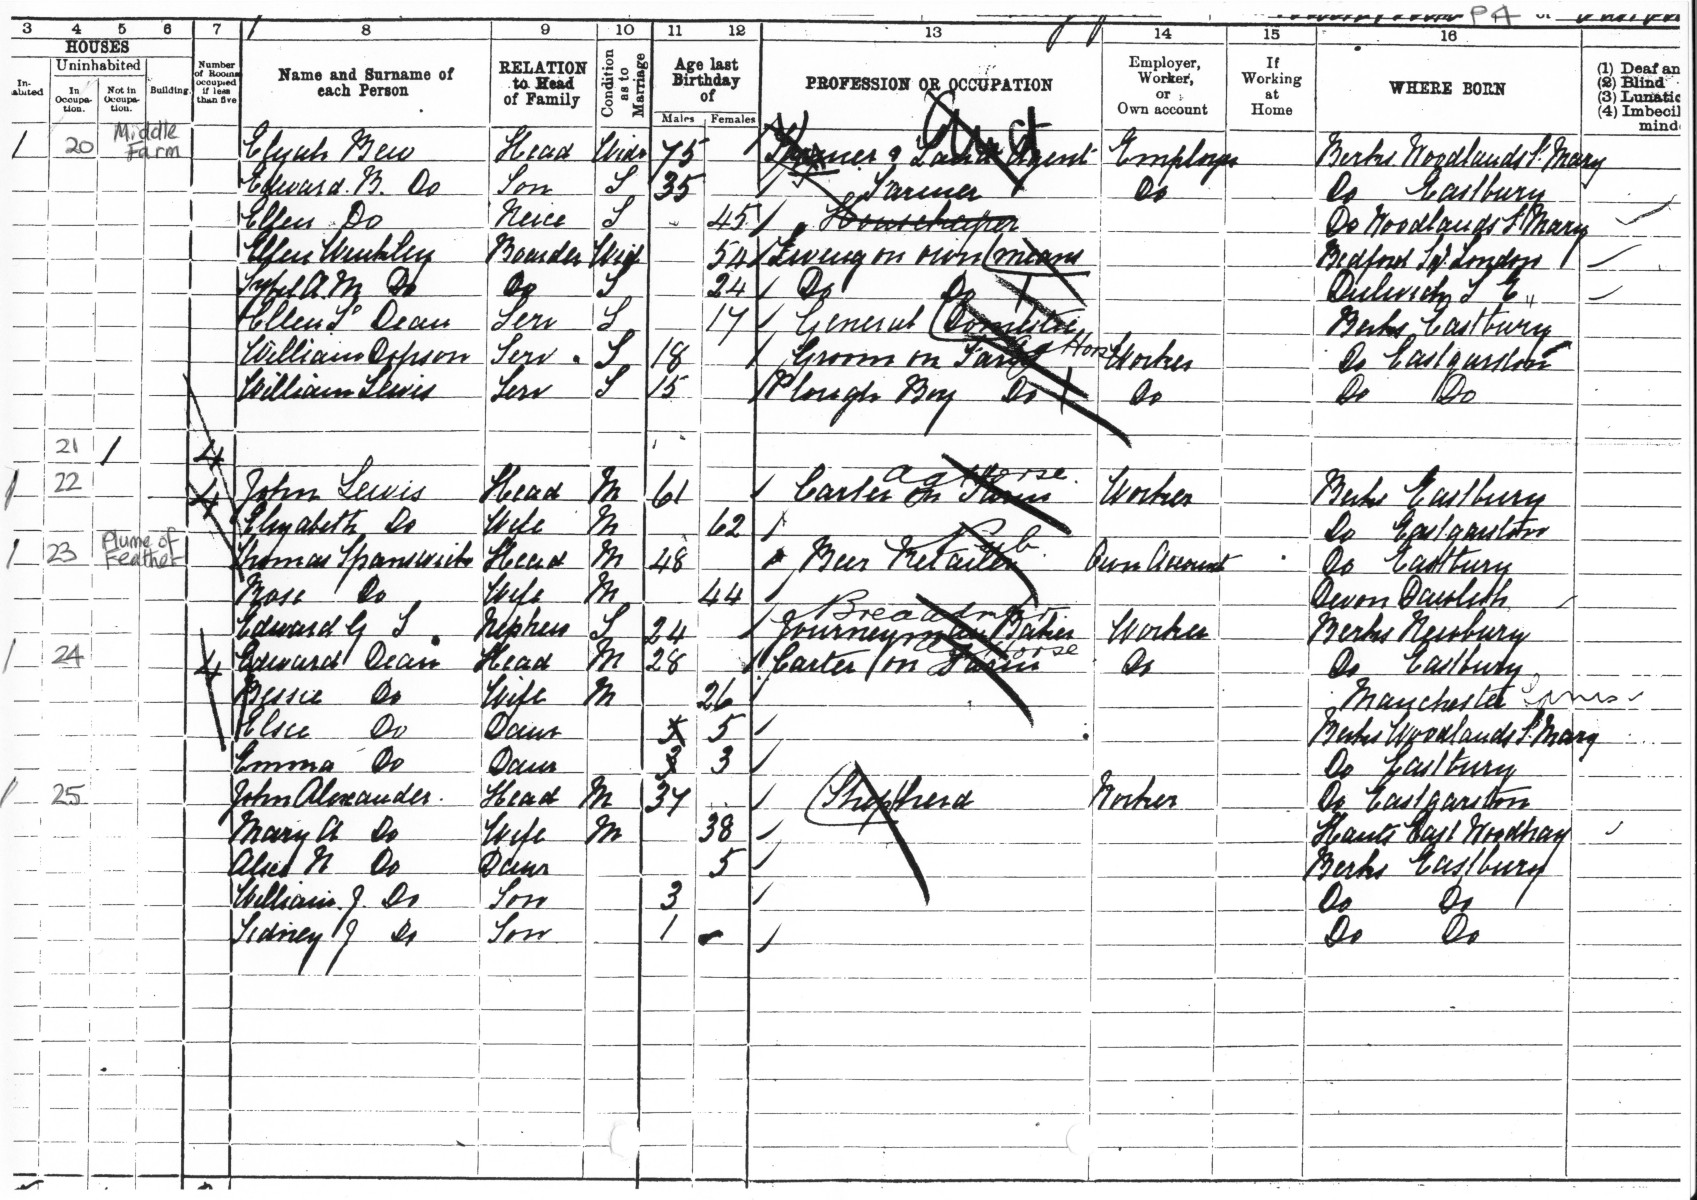 P4
3 4 5 6 7 8 9 10 11 12 13 14 15 16
HOUSES
In-abited
Uninhabited
In Occupa-tion.
Not in Occupa-tion.
Building.
Number of Rooms occupied if less than five
Name and Surname of each Person
RELATION to Head of Family
Condition as to Marriage
Age last Birthday of
Males Females
PROFESSION OR OCCUPATION
Employer, Worker, or Own account
If Working at Home
WHERE BORN
(1) Deaf an
(2) Blind
(3) Lunatic
(4) Imbecil
mind
1 20 Middle Farm Elijah Bew Head Widr 75 Farmer & Land Agent Employer Berks Woodlands St Mary
Edward. B. Do Son S 35 Farmer Do Do Eastbury
Ellen Do Neice S 45 Housekeeper Do Woodlands St Mary
Ellen Boarder Wid 54 Living on own means Bedford London
Sybil A. M. Do Do S 24 Do Do Dulwich S E
Ellen Dean Serv S 17 General Domestic Berks Eastbury
William Serv. S 18 Groom on Farm Horse Worker Do Eastgarston
William Lewis Serv S 15 Plough Boy Do Do Do Do
21 1 4
1 22 4 John Lewis Head M 61 Carter on Farm ag Horse Worker Berks Eastbury
Elizabeth Do Wife M 62 Do Eastgarston
1 23 Plume of Feather Thomas Spanswick Head M 48 Beer Retailer Pub. Own Account Do Eastbury
Rose Do Wife M 44 Devon Dawlish
Edward G S Nephew S 24 Journeyman Baker Bread Worker Berks Newbury
1 24 4 Edward Dean Head M 28 Carter on Farm ag Horse Do Do Eastbury
Bessie Do Wife M 26 Manchester
Elsie Do Daur 5 5 Berks Woodlands St Mary
Emma Do Daur 3 3 Do Eastbury
1 25 John Alexander. Head M 37 Shepherd Worker Do Eastgarston
Mary A Do Wife M 38 Hants East Woodhay
Alice N Do Daur 5 Berks Eastbury
William. J. Do Son 3 Do Do
Sidney J Do Son 1 Do Do